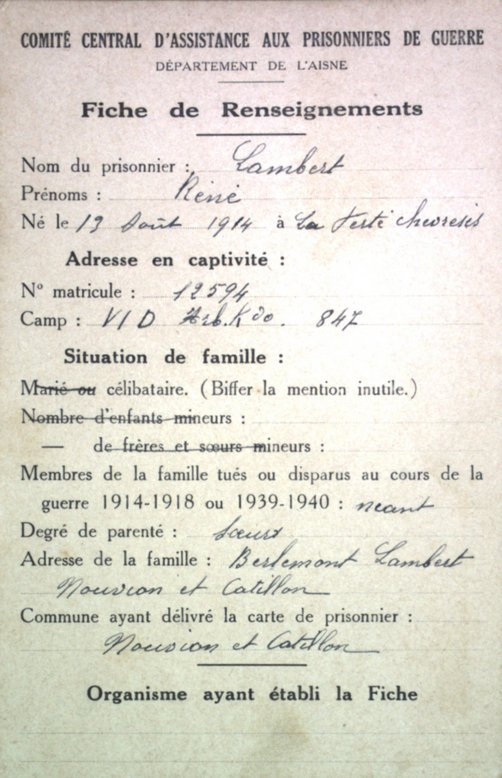 COMITÉ CENTRAL D'ASSISTANCE AUX PRISONNIERS DE GUERRE
DÉPARTEMENT DE L'AISNE
Fiche de Renseignements
Nom du prisonnier : Lambert
Prénoms : Réné
Né le 19 Août 1914 à La Ferté Chevresis
Adresse en captivité :
N° matricule : 12594
Camp : VI D Arb. Kdo. 847
Situation de famille :
Marié ou célibataire. (Biffer la mention inutile.)
Nombre d'enfants mineurs :
— de frères et sœurs mineurs :
Membres de la famille tués ou disparus au cours de la
guerre 1914-1918 ou 1939-1940 : neant
Degré de parenté : sœur
Adresse de la famille : Berlemont Lambert
Nouvion et Catillon
Commune ayant délivré la carte de prisonnier :
Nouvion et Catillon
Organisme ayant établi la Fiche